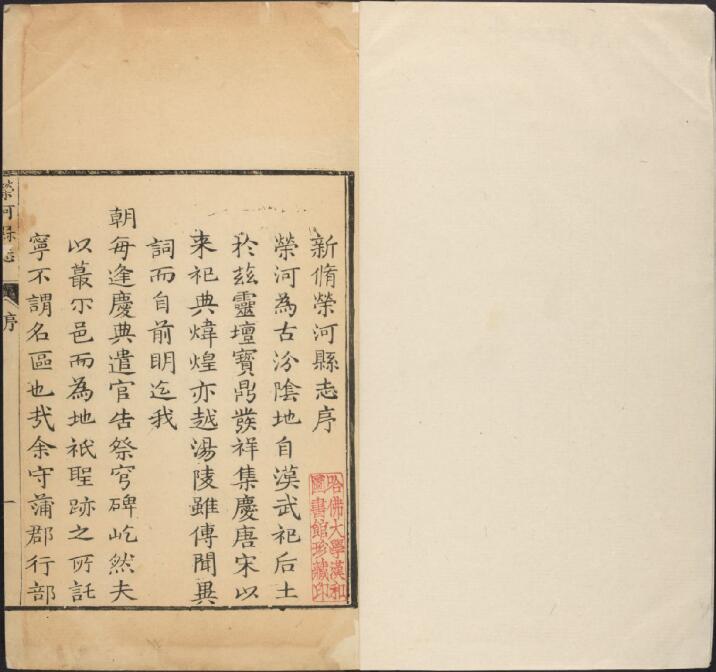 新脩榮河縣志序
榮河為古汾陰地自漢武祀后土
於茲靈壇寶鼎發祥集慶唐宋以
来祀典煒煌亦越湯陵雖傳聞異
詞而自前明迄我
朝每逢慶典遣官告祭穹碑屹然夫
以蕞尔邑而為地祇聖跡之所託
寧不謂名區也哉余守蒲郡行部
榮河縣志
序
一
哈佛大學漢和
圖書館珍藏印